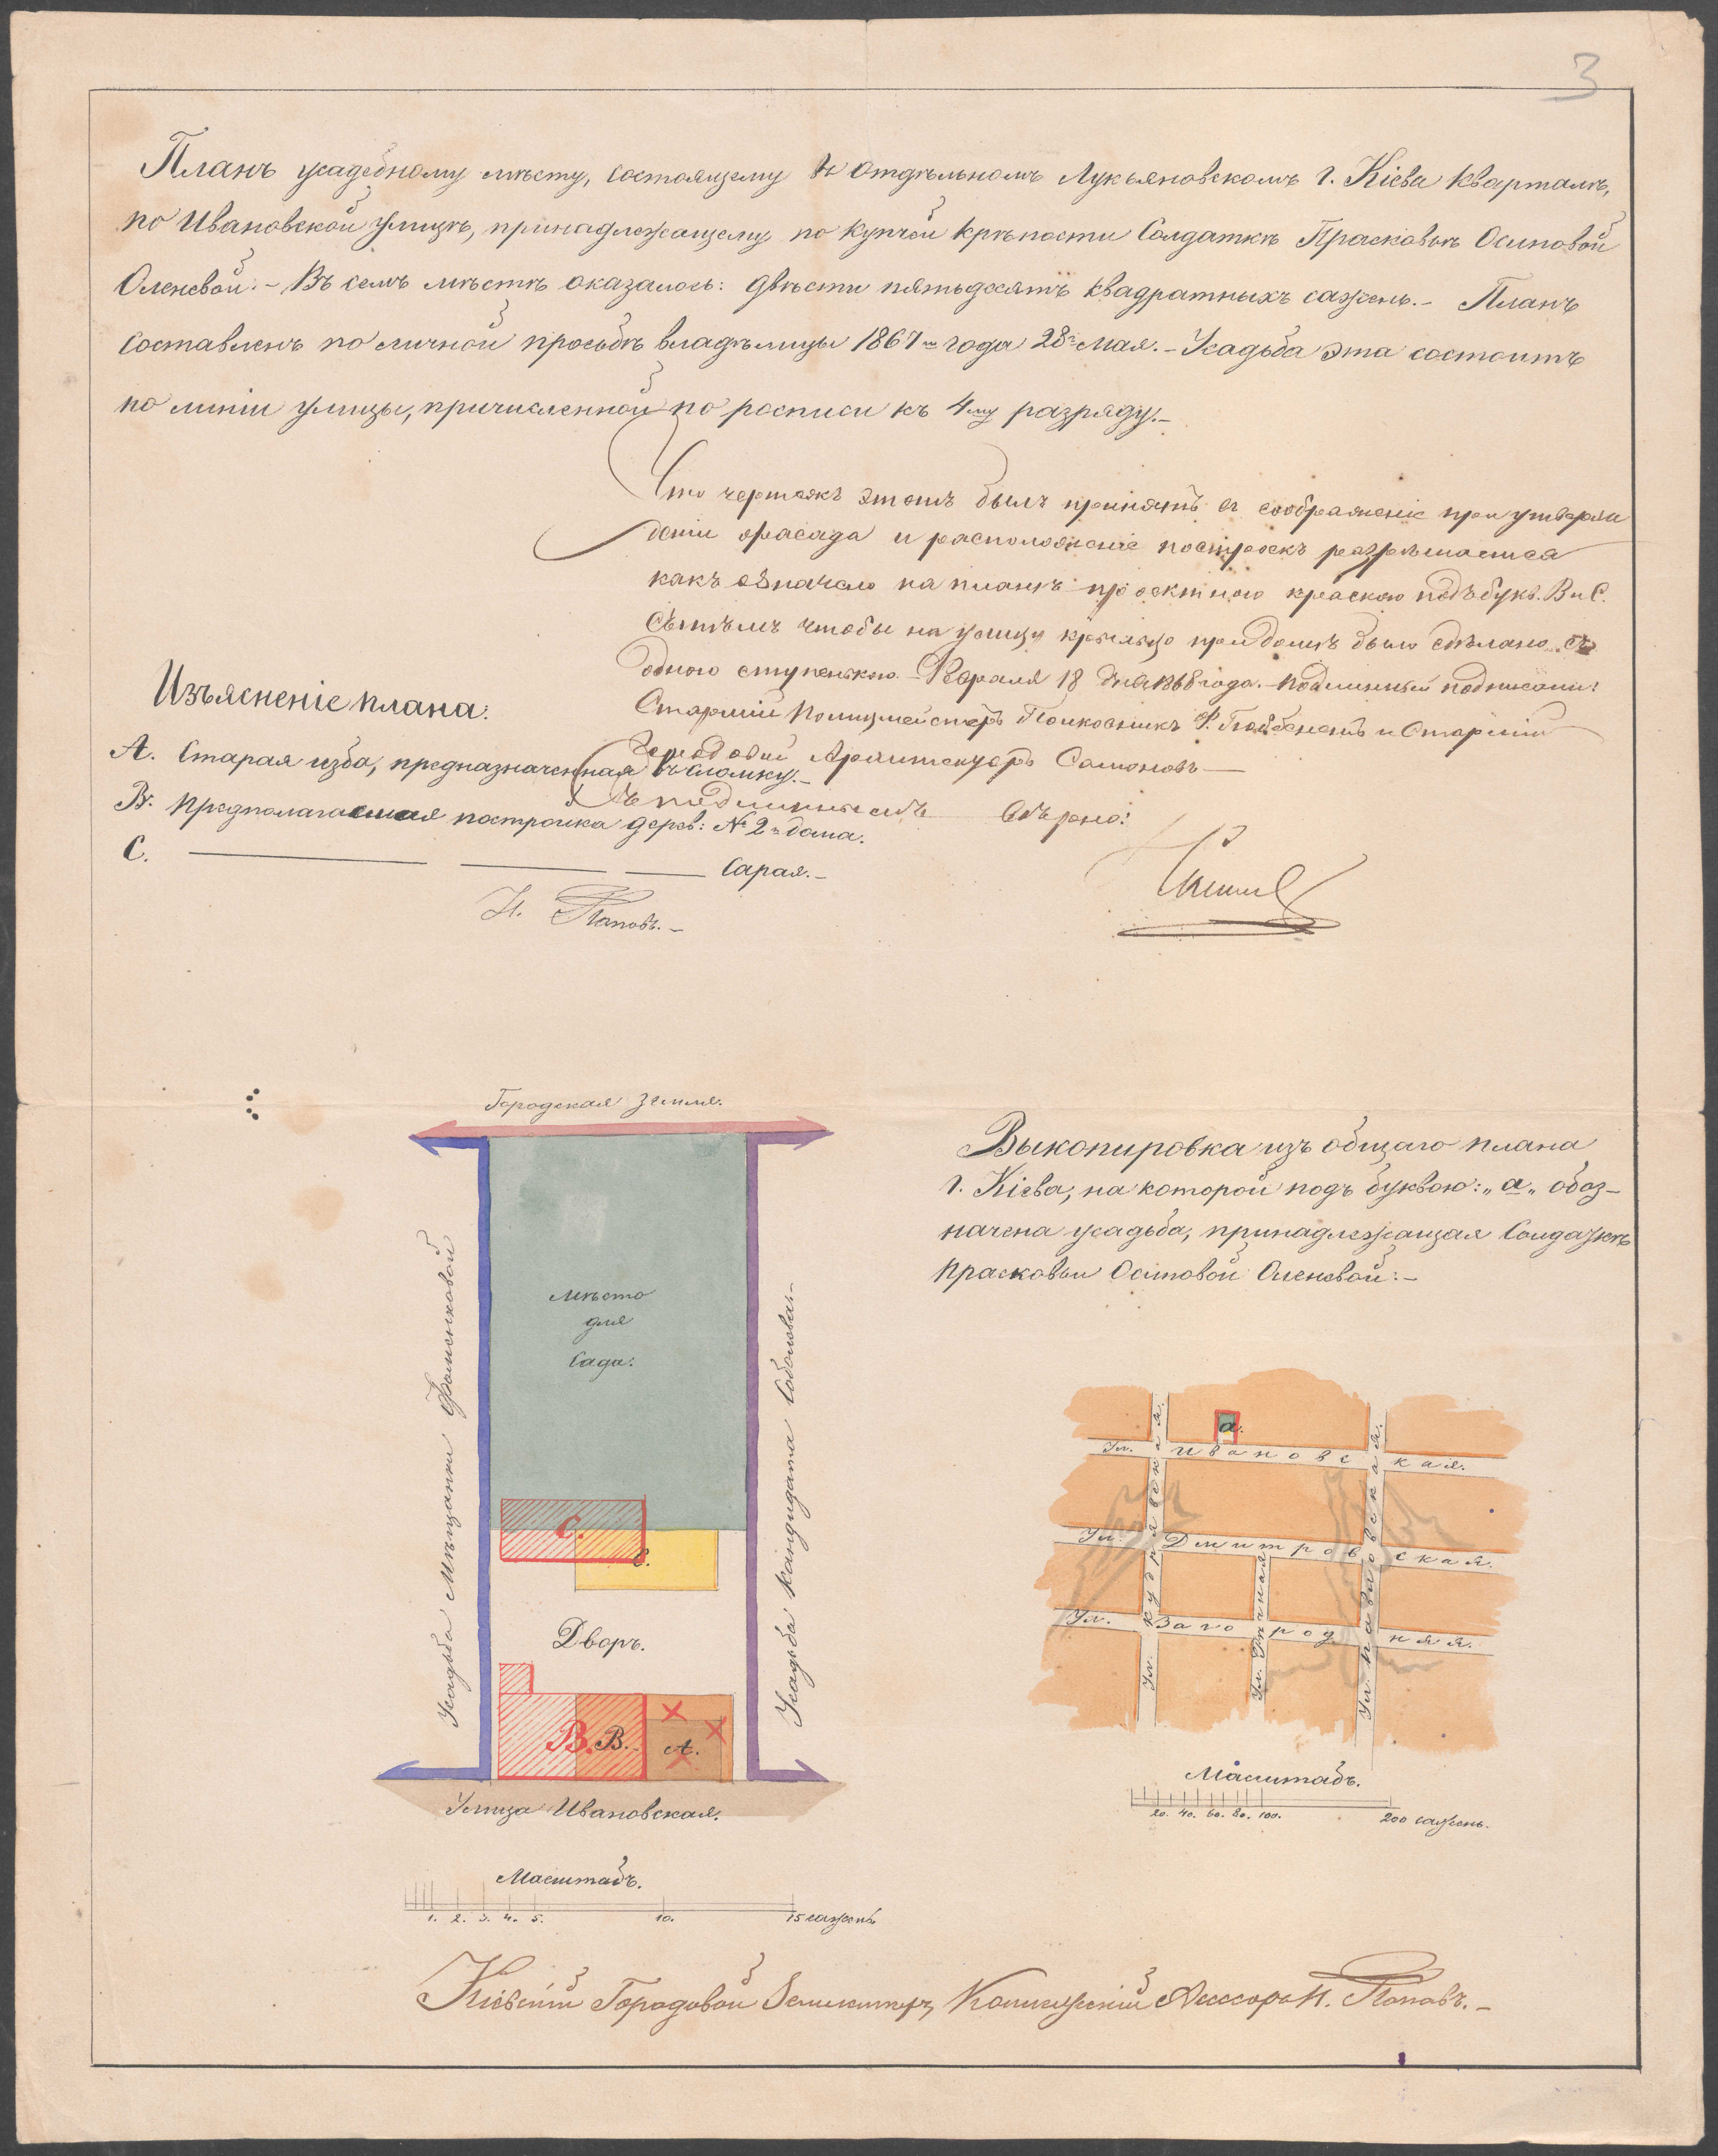 3
Планъ усадебному мѣсту, состоящему въ отдѣльномъ Лукьяновскомъ г. Кіева кварталѣ,
по Ивановской улицѣ, принадлежащему по купчей крѣпости Солдаткѣ Прасковьѣ Осиповой
Оленевой:- Въ семъ мѣстѣ оказалось: двѣсти пятьдесятъ квадратныхъ сажень.- Планъ
составленъ по личной просьбѣ владѣлицы 1867го года 28го Мая.- Усадьба эта состоитъ
по линіи улицы, причисленной по росписи къ 4му разряду.-
Что чертежъ этотъ былъ принятъ въ соображеніе при утверж
деніи фасада и расположеніе построекъ разрѣшается
какъ означено на планѣ проектною краскою подъ букв. В и С.
съ тѣмъ чтобы на улицу крыльцо при домѣ было сдѣлано съ
одною ступенькою. Февраля 18 дня 1868 года. Подлинный подписали:
Старшій Полицмейстеръ Полковникъ и Старшій
Городовой Архитекторъ
Съ подлиннымъ вѣрно:
Изъясненіе плана:
А. Старая изба, предназначенная въ сломку.-
В. Предполагаемая постройка дерев: № 2го дома.
С. Сарая.-
Н. Поповъ.-
Городская земля.
Усадьба Мѣщанки Фоменковой
Мѣсто
для
сада:
Усадьба кандидата Соболева:-
С.
С.
Дворъ.
В. В. А.
Улица Ивановская.
Масштабъ.
1. 2. 3. 4. 5. 10. 15 сажень
Выкопировка изъ общаго плана
г. Кіева, на которой подъ буквою: „а„ обоз-
начена усадьба, принадлежащая Солдаткѣ
Прасковьи Осиповой Оленевой:-
а.
Ул. Ивановская.
Ул. Дмитровская.
Ул. Загородняя.
Ул. Кудрявская.
Ул. Павловская.
Масштабъ.
20. 40. 60. 80. 100. 200 сажень.
Кіевскій Городовой Землемѣръ, Коллежскій Ассесоръ Н. Поповъ.-